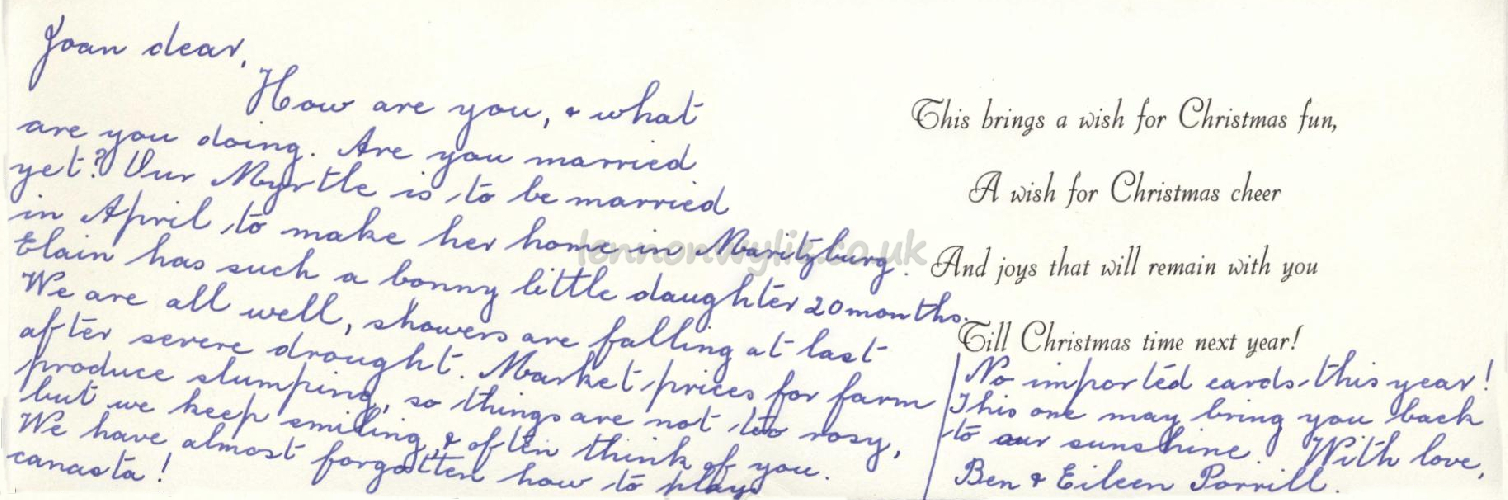 Joan dear,
How are you, & what
are you doing. Are you married
yet? Our Myrtle is to be married
in April to make her home in Maritzburg.
Elain has such a bonny little daughter 20 months.
We are all well, showers are falling at last
after severe drought. Market prices for farm
produce slumping, so things are not too rosy,
but we keep smiling & often think of you.
We have almost forgotten how to play
canasta!
This brings a wish for Christmas fun,
A wish for Christmas cheer
And joys that will remain with you
Till Christmas time next year!
No imported cards this year!
This one may bring you back
to our sunshine. With love,
Ben & Eileen Porrill.
lennonwylie.co.uk